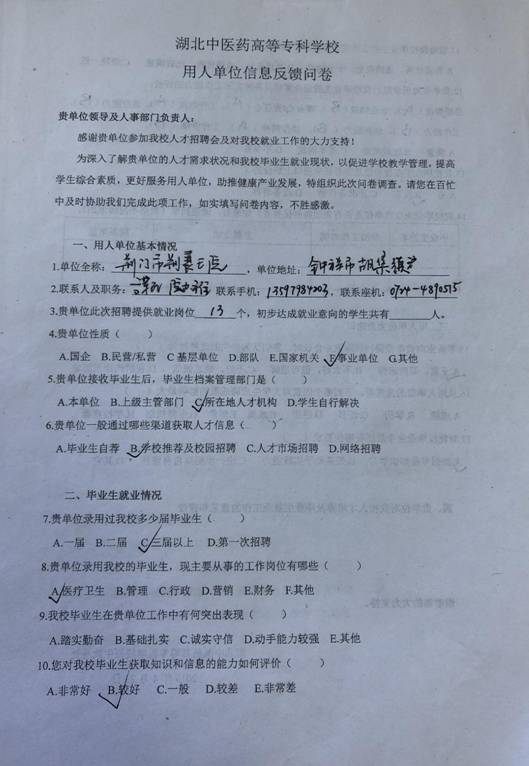 湖北中医药高等专科学校
用人单位信息反馈问卷
贵单位领导及人事部门负责人：
感谢贵单位参加我校人才招聘会及对我校就业工作的大力支持！
为深入了解贵单位的人才需求状况和我校毕业生就业现状，以促进学校教学管理，提高
学生综合素质，更好服务用人单位，助推健康产业发展，特组织此次问卷调查。请您在百忙
中及时协助我们完成此项工作，如实填写问卷内容，不胜感激。
一、用人单位基本情况
1.单位全称：荆门市 ，单位地址：钟祥市胡集镇
2.联系人及职务： 联系手机： ，联系座机：0724-4890515
3.贵单位此次招聘提供就业岗位 13 个，初步达成就业意向的学生共有 人。
4.贵单位性质（ ）
A.国企 B.民营/私营 C 基层单位 D.部队 E.国家机关 F.事业单位 G.其他
5.贵单位接收毕业生后，毕业生档案管理部门是（ ）
A.本单位 B.上级主管部门 C.所在地人才机构 D.学生自行解决
6.贵单位一般通过哪些渠道获取人才信息（ ）
A.毕业生自荐 B.学校推荐及校园招聘 C.人才市场招聘 D.网络招聘
二、毕业生就业情况
7.贵单位录用过我校多少届毕业生（ ）
A.一届 B.二届 C.三届以上 D.第一次招聘
8.贵单位录用我校的毕业生，现主要从事的工作岗位有哪些（ ）
A.医疗卫生 B.管理 C.行政 D.营销 E.财务 F.其他
9.我校毕业生在贵单位工作中有何突出表现（ ）
A.踏实勤奋 B.基础扎实 C.诚实守信 D.动手能力较强 E.其他
10.您对我校毕业生获取知识和信息的能力如何评价（ ）
A.非常好 B.较好 C.一般 D.较差 E.非常差